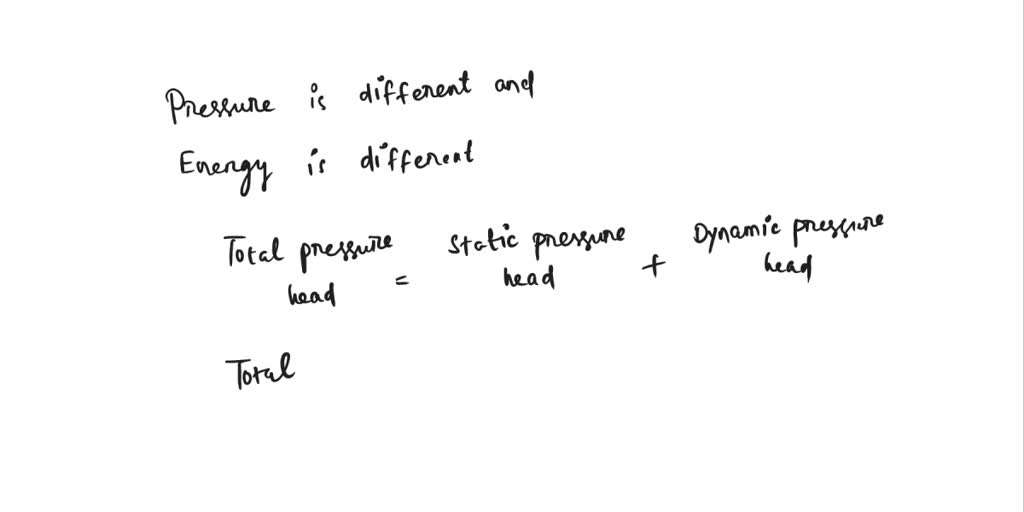 Pressure is different and
Energy is different
Total pressure head = Static pressure head + Dynamic pressure head
Total